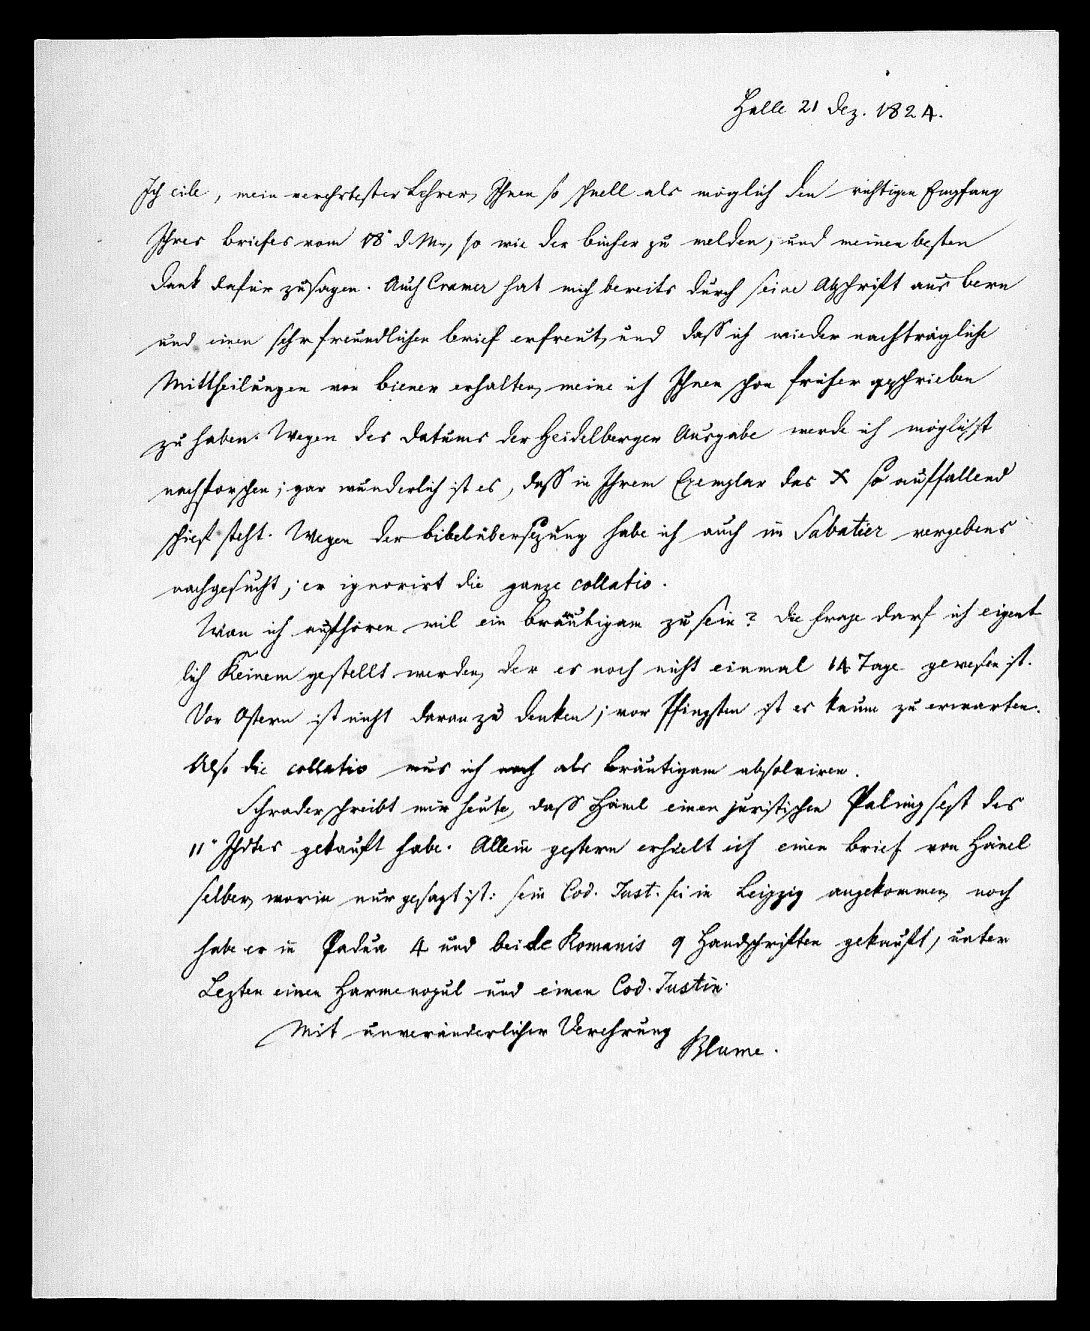 Halle 21 Dez. 1824.
Ich eile, mein verehrtester Lehrer, Ihnen so schnell als möglich den richtigen Empfang
Ihres Briefes vom 18 d. M., so wie der Bücher zu melden, und meinen besten
Dank dafür zu sagen. Auch Cramer hat mich bereits durch seine Abschrift aus Bern
und einen sehr freundlichen Brief erfreut, und daß ich wieder nachträgliche
Mittheilungen von Biener erhalten, meine ich Ihnen schon früher geschrieben
zu haben. Wegen des Datums der Heidelberger Ausgabe werde ich möglichst
nachforschen; gar wunderlich ist es, daß in Ihrem Exemplar das X so auffallend
schief steht. Wegen der Bibelübersezung habe ich auch im Sabatier vergebens
nachgesucht; er ignorirt die ganze collatio.
Wan ich aufhören wil ein Bräutigam zu sein? Die Frage darf ich eigent
lich Keinem gestellt werden, der es noch nicht einmal 14 Tage gewesen ist.
Vor Ostern ist nicht daran zu denken; vor Pfingsten ist es kaum zu erwarten.
Also die collatio mus ich noch als Bräutigam absolviren.
Schrader schreibt mir heute, daß Hänel einen juristischen Palimpsest des
11 Jhdts gekauft habe. Allein gestern erhielt ich einen Brief von Hänel
selber, worin nur gesagt ist: sein Cod. Just. sei in Leipzig angekommen, noch
habe er in Padua 4 und bei de Romanis 9 Handschriften gekauft, unter
Lezten einen Harmenopul und einen Cod. Justin.
Mit unveränderlicher Verehrung
Blume.